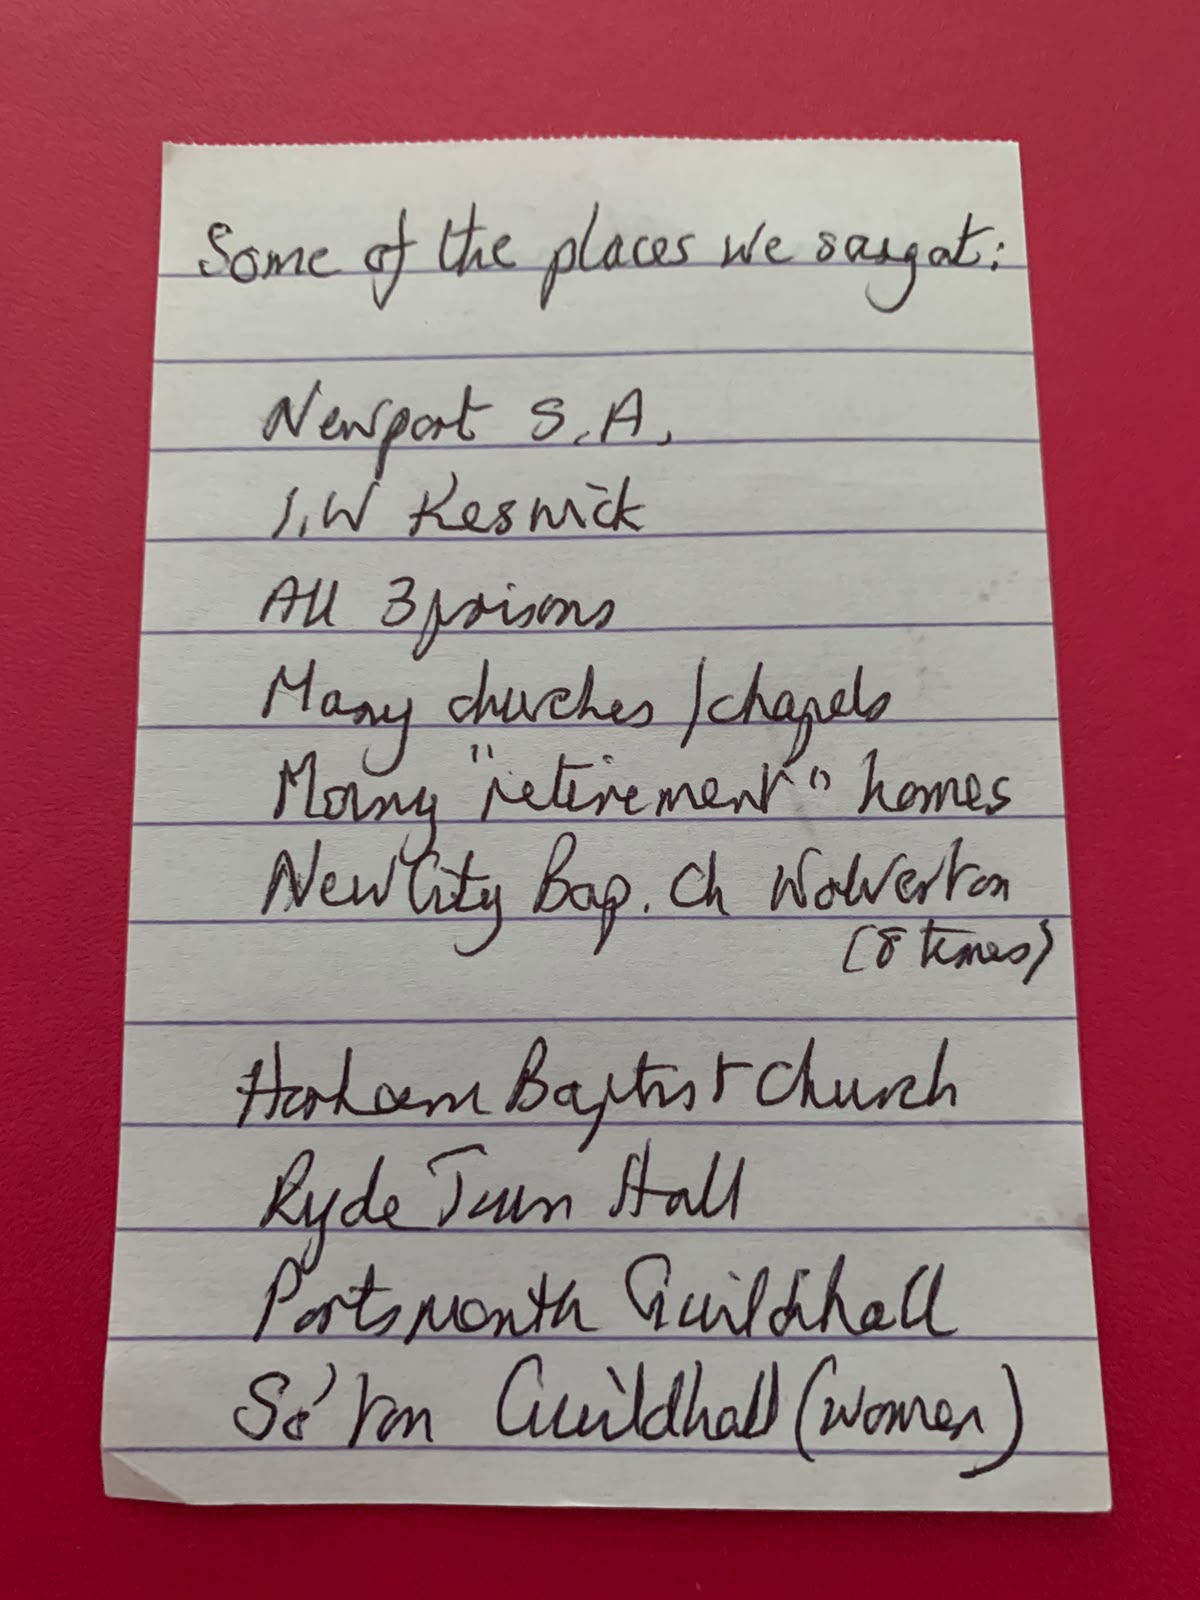 Some of the places we sang at:
Newport S.A.
I.W Keswick
All 3 prisons
Many churches/chapels
Many "retirement" homes
New City Bap. Ch Wolverton
(8 times)
Baptist Church
Ryde Town Hall
Portsmouth Guildhall
So'ton Guildhall (women)